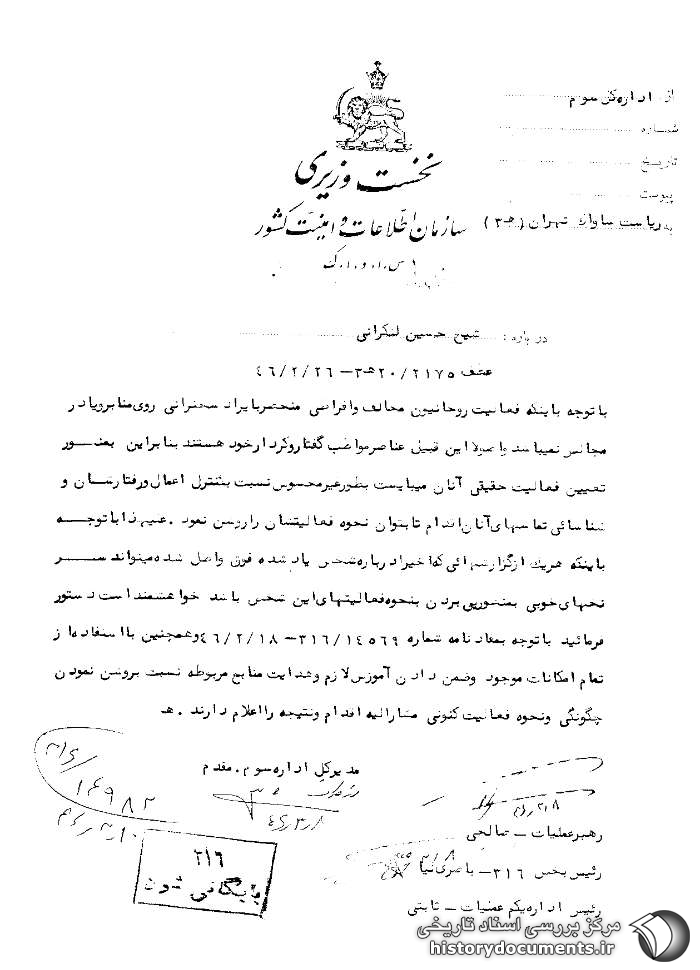 از: اداره کل سوم
شماره
تاریخ
پیوست
نخست وزیری
سازمان اطلاعات و امنیت کشور
به ریاست ساواک تهران (هـ ۳)
س.ا.و.ا.ک
درباره: شیخ حسین لنکرانی
عطف ۲۰/۲۱۷۵هـ۳ – ۴۶/۲/۲۶
با توجه باینکه فعالیت روحانیون مخالف و افراطی منحصر بایراد سخنرانی روی منابر و یا در
مجالس نمیباشد و اصولا این قبیل عناصر مواظب گفتار و کردار خود هستند بنابراین بمنظور
تعیین فعالیت حقیقی آنان میبایست بطور غیر محسوس نسبت بکنترل اعمال و رفتارشان و
شناسائی تماسهای آنان اقدام تا بتوان نحوه فعالیتشان را روشن نمود. علیهذا با توجـــه
باینکه هریک از گزارشهائی که اخیرا درباره شخص یاد شده فوق واصل شده میتواند ســـر
نخهای خوبی بمنظور پی بردن بنحوه فعالیتهای این شخص باشد خواهشمند است دستور
فرمائید با توجه بمفاد نامه شماره ۳۱۶/۱۴۵۶۹ – ۴۶/۲/۱۸ و همچنین با استفاده از
تمام امکانات موجود و ضمن دادن آموزش لازم و هدایت منابع مربوطه نسبت بروشن نمودن
چگونگی و نحوه فعالیت کنونی مشارالیه اقدام و نتیجه را اعلام دارند. هـ
مدیر کل اداره سوم. مقدم
۳۱۶/
۱۴۹۸۲
۴۶/۳/۱۰
۴۶/۳/۸
رهبر عملیات – صالحی
رئیس بخش ۳۱۶ – باصری نیا
رئیس اداره یکم عملیات – ثابتی
۳۱۶
بایگانی شود
مرکز بررسی اسناد تاریخی
historydocuments.ir